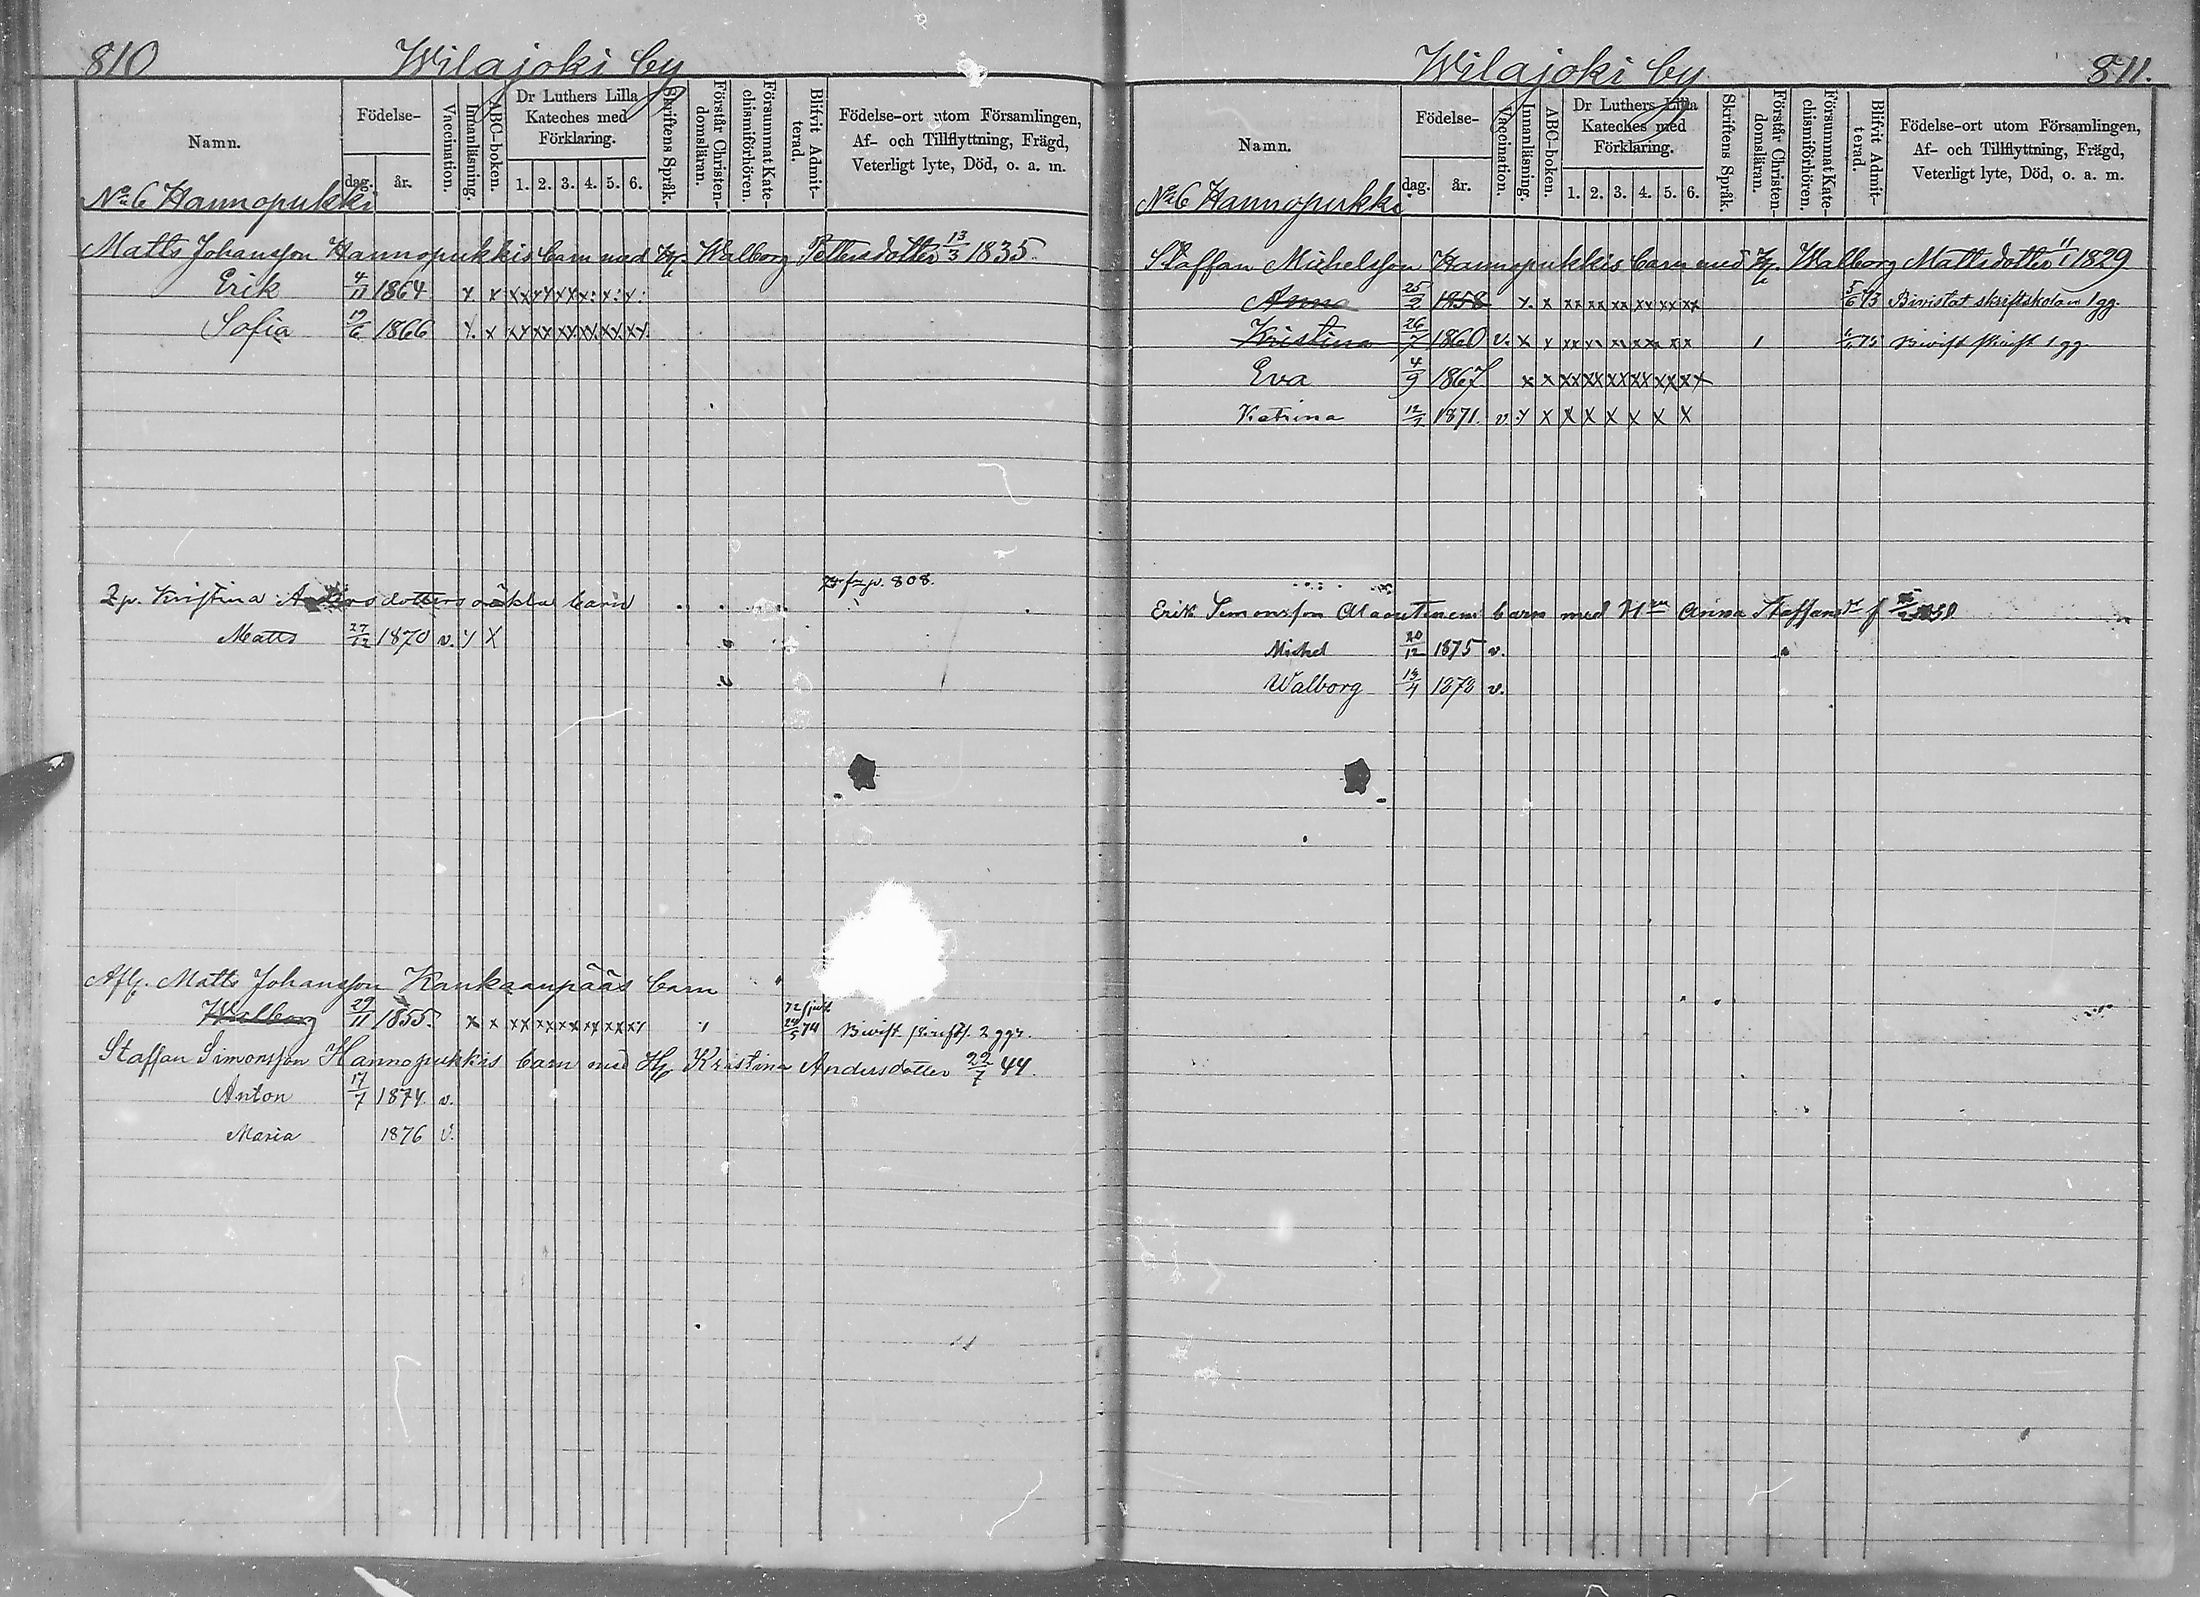 810 Wilajoki by
Namn. Födelse- dag. år. Vaccination. Innanläsning. ABC-boken. Dr Luthers Lilla Kateches med Förklaring. 1. 2. 3. 4. 5. 6. Skriftens Språk. Förstår Christen-domsläran. Försummat Kate-chismiförhören. Blifvit Admit-terad. Födelse-ort utom Församlingen, Af- och Tillflyttning, Frägd, Veterligt lyte, Död, o. a. m.
No 6 Hannopukki
Matts Johansson Hannopukkis barn med Hu Walborg Pettersdotter 13/3 1835.
Erik 4/11 1864 x x xx xx xx x: x: x:
Sofia 19/6 1866 x. x xx xx xx xx xx xx
fr p. 808.
Kristina Andersdotters oäkta barn
Matts 27/12 1870 v. x x
Afl. Matts Johansson Kankaanpääs barn
Walborg 29/11 1855. x x xx xx xx xx xx xx 1 24/5 74 Bivist skriftsk. 2 ggr.
Staffan Simonsson Hannopukkis barn med Hu Kristina Andersdotter 22/7 44.
Anton 17/7 1874 v.
Maria 1876 v.
Wilajoki by 811.
Namn. Födelse- dag. år. Vaccination. Innanläsning. ABC-boken. Dr Luthers Lilla Kateches med Förklaring. 1. 2. 3. 4. 5. 6. Skriftens Språk. Förstår Christen-domsläran. Försummat Kate-chismiförhören. Blifvit Admit-terad. Födelse-ort utom Församlingen, Af- och Tillflyttning, Frägd, Veterligt lyte, Död, o. a. m.
No 6 Hannopukki
Staffan Michelsson Hannopukkis barn med Hu Walborg Mattsdotter 11/1 1829
Anna 25/2 1858 x. x xx xx xx xx xx xx 5/6 73 Bivistat skriftskolan 1 gg.
Kristina 26/7 1860 v. x x xx xx xx xx xx xx 1 75 Bivist skrift 1 gg.
Eva 4/9 1867 x x xx xx xx xx xx xx
Katrina 1871. v. x x x x x x x x
Erik Simonsson barn med Anna Staffansdr f
Michel 20/12 1875 v.
Walborg 1873 v.